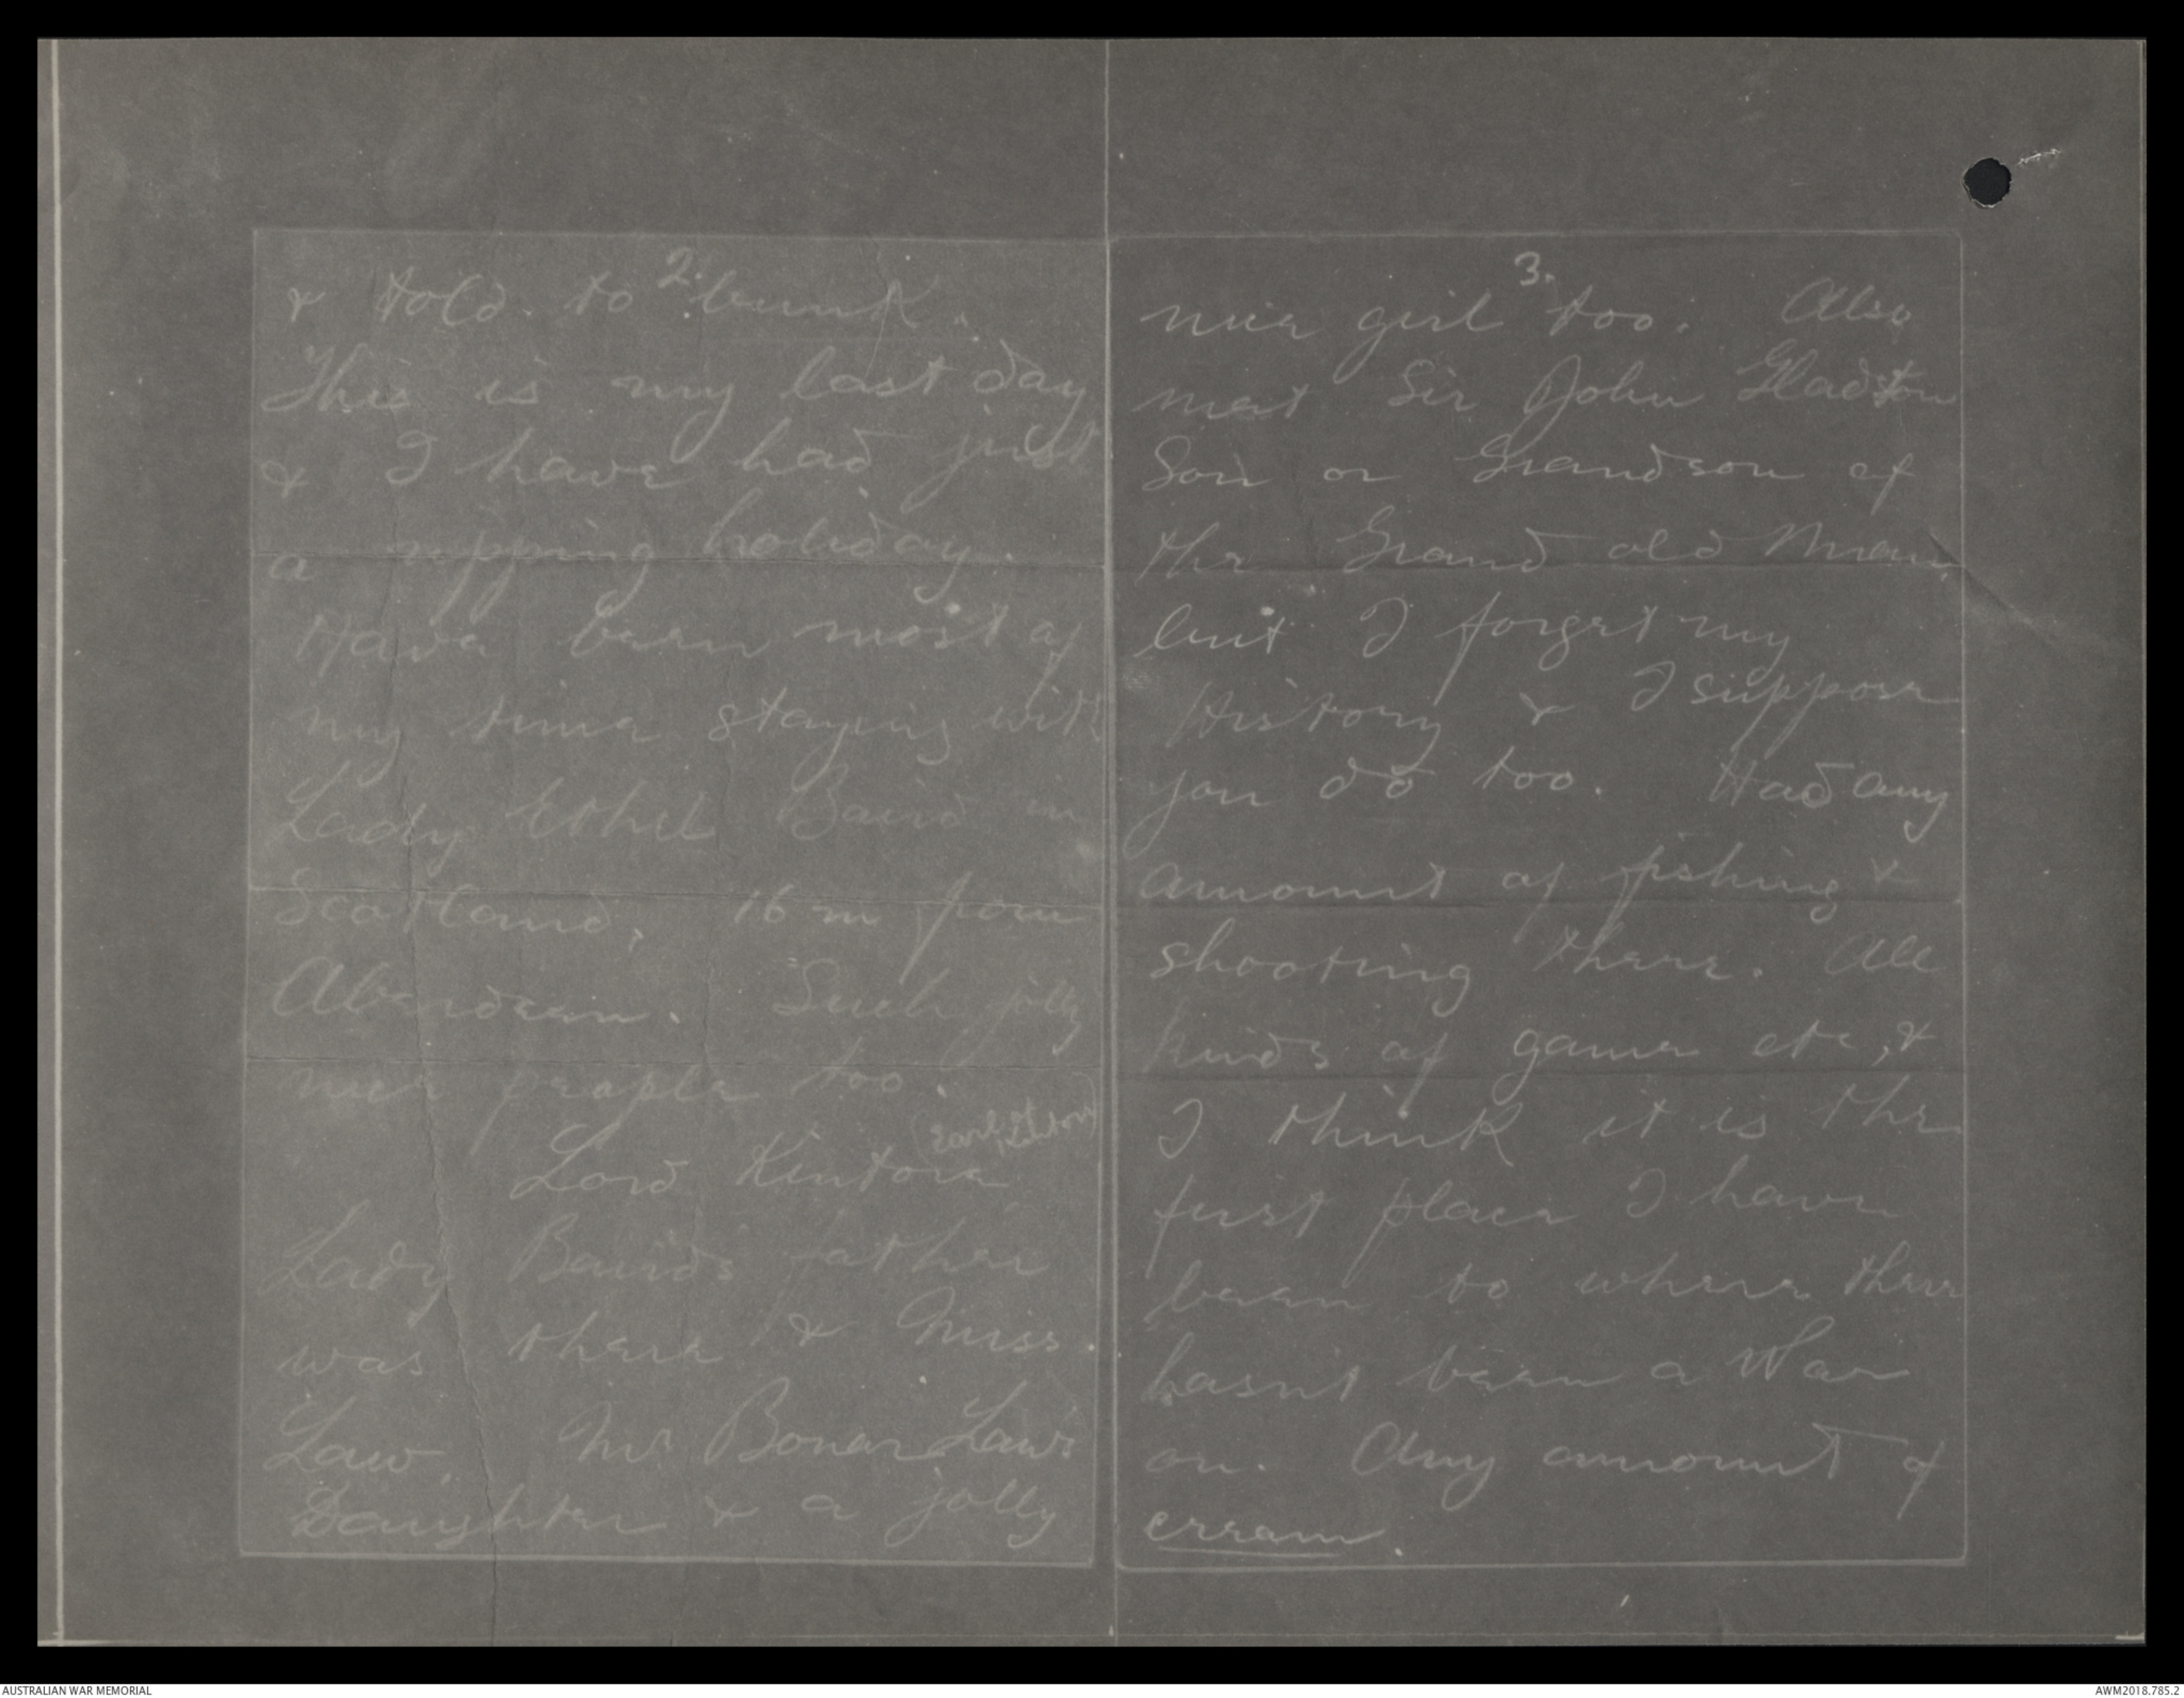 2.
& told. to bunk.
This is my last day
& I have had just
a ripping holiday.
Have been most of
my time staying with
Lady Ethel Baird in
Scotland, 16 m from
Aberdeen. Such jolly
nice people too.
(Earl
Lord Kintore
Lady Baird's father
was there & Miss
Law. Mr Bonar Law's
Daughter & a jolly
3.
nice girl too. Also
met Sir John Gladston
Son or Grandson of
the Grand old Man,
but I forget my
History & I suppose
you do too. Had any
amount of fishing &
shooting there. All
kinds of game etc, &
I think it is the
first place I have
been to where there
hasn't been a War
on. Any amount of
cream.
AUSTRALIAN WAR MEMORIAL
AWM2018.785.2